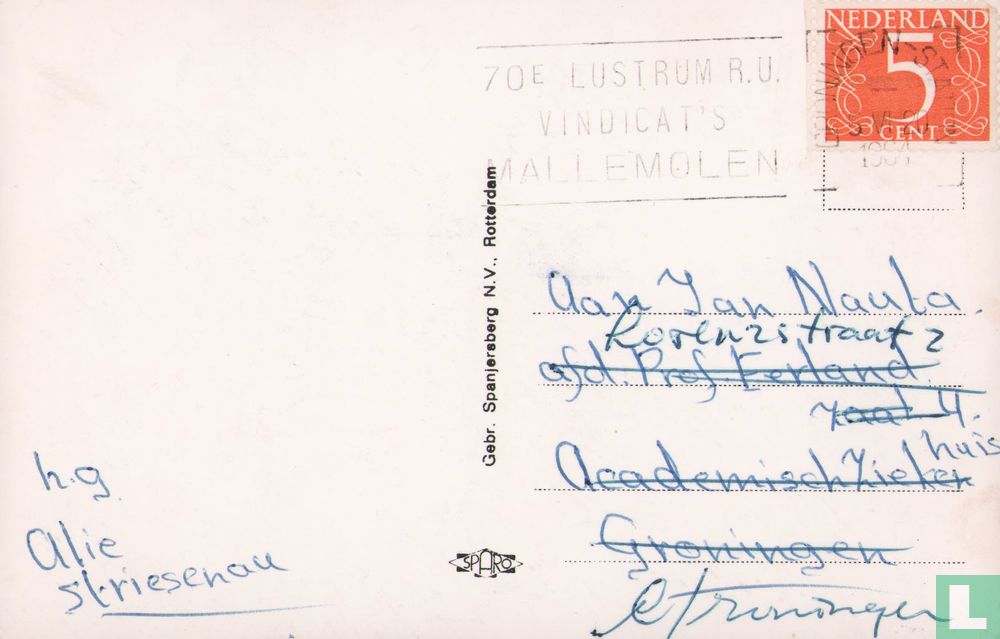 NEDERLAND
5
CENT
70E LUSTRUM R.U.
VINDICAT'S
MALLEMOLEN
GRONINGEN-STATION
1964
Gebr. Spanjersberg N.V., Rotterdam
Aan Jan Nauta.
Lorenzstraat 2
afd. Prof Eerland.
zaal II.
Academisch Zieken
huis
Groningen
Groningen
h.g.
Alie
Striesenau
SPARO
L